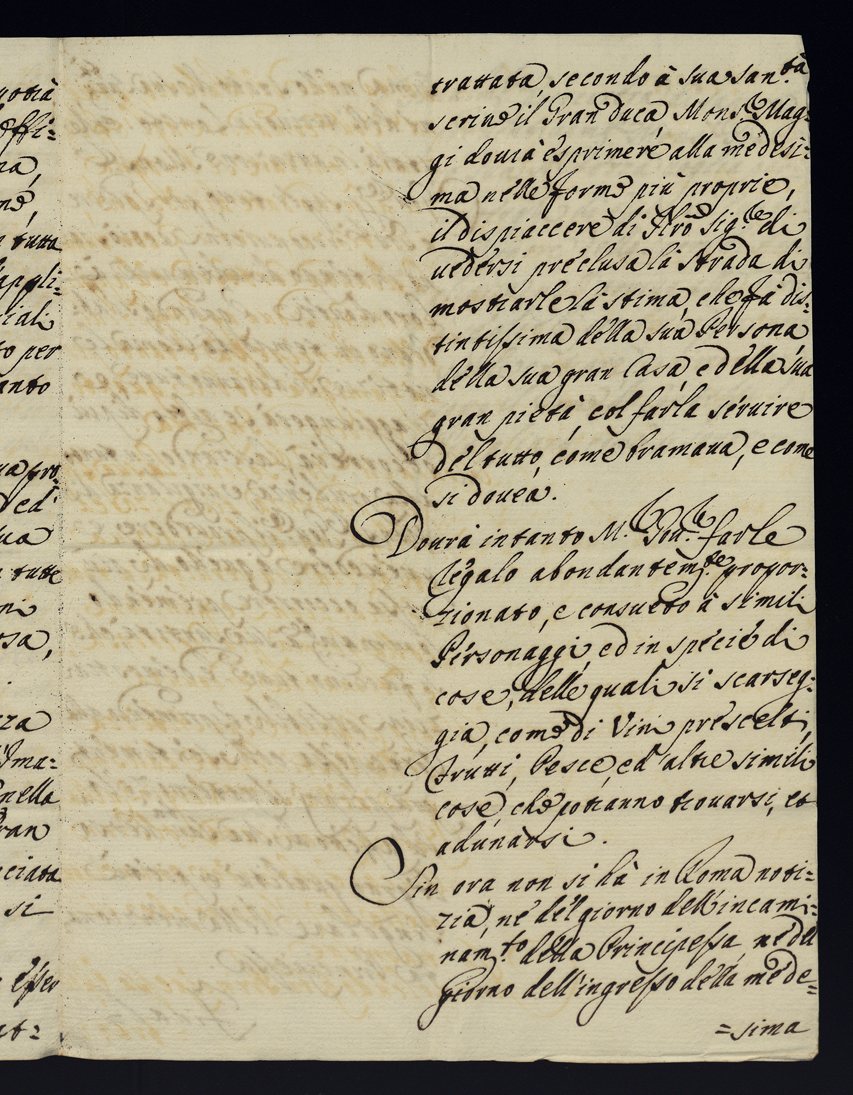 trattata, secondo à sua San.tà
scrive il Gran Duca, Mons.re Mag=
gi dovrà esprimere alla medesi=
ma nelle forme più proprie,
il dispiaccere di Nrõ Sig.re di
vedersi preclusa la strada di
mostrarle la stima, che fà dis=
tintissima della sua Persona
della sua gran Casa, e della sua
gran pietà, col farla servire
del tutto, come bramava, e come
si dovea.
Dovrà intanto M.r Gov.re farle
regalo abondantem.te propor=
zionato, e consueto à simili
Personaggi, ed in specie di
cose, delle quali si scarseg=
gia, come di Vini prescelti,
frutti, Pesce, ed altre simili
cose, che potranno trovarsi, et
adunarsi.
Sin ora non si hà in Roma noti=
zia, ne del giorno dell'incami=
nam.to della Principessa, ne del
giorno dell'ingresso della mede=
=sima
votià
effi=
na,
me,
n tutta
appli=
iali
to per
anto
ua pro
ed
ua
n tutte
ni
osa,
za
Ima=
nella
ran
ciata
si
esser
at=